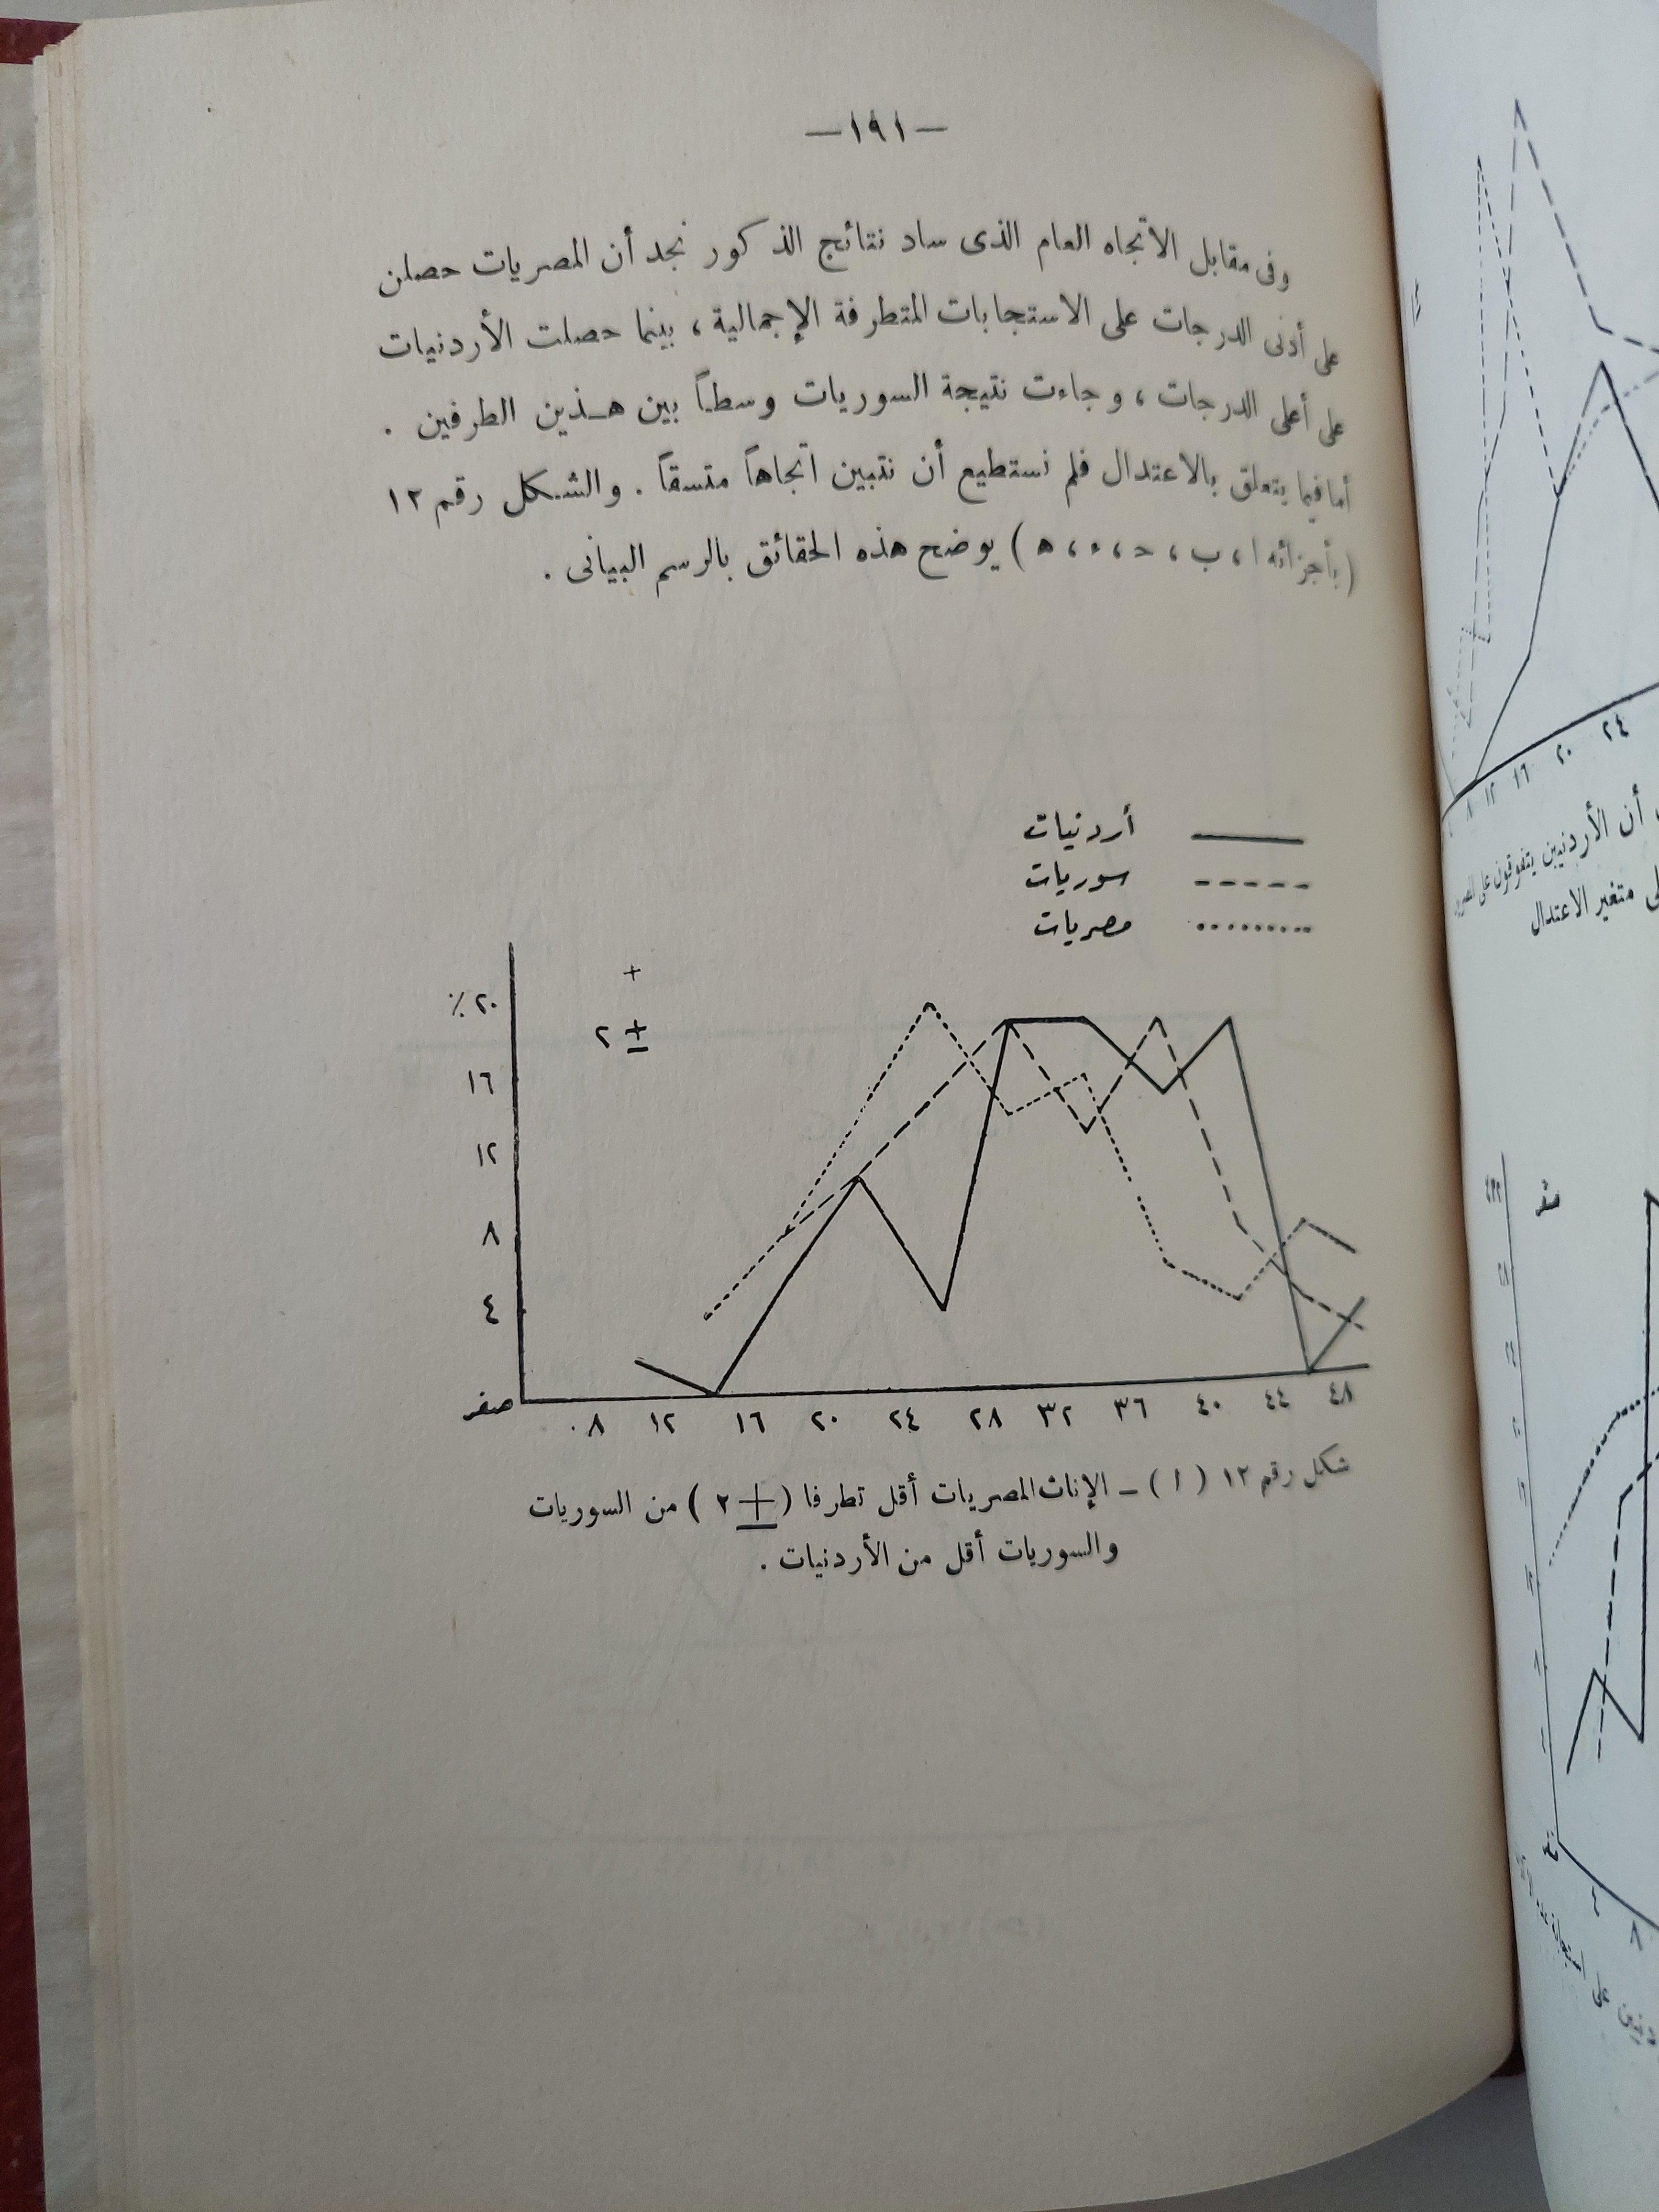 —١٩١—
وفى مقابل الاتجاه العام الذى ساد نتائج الذكور نجد أن المصريات حصلن
على أدنى الدرجات على الاستجابات المتطرفة الإجمالية ، بينما حصلت الأردنيات
على أعلى الدرجات ، وجاءت نتيجة السوريات وسطاً بين هـذين الطرفين .
أما فيما يتعلق بالاعتدال فلم نستطيع أن نتبين اتجاهاً متسقاً . والشكل رقم ١٢
(بأجزائه ا ، ب ، حـ ، ء ، ه ) يوضح هذه الحقائق بالرسم البيانى .
أردنيات
سوريات
مصريات
+
± ٢
٢٠ ٪
١٦
١٢
٨
٤
صفر
٠٨ ١٢ ١٦ ٢٠ ٢٤ ٢٨ ٣٢ ٣٦ ٤٠ ٤٤ ٤٨
شكل رقم ١٢ ( ا ) – الإناث المصريات أقل تطرفا ( ± ٢ ) من السوريات
والسوريات أقل من الأردنيات .
٨ ١٢ ١٦ ٢٠ ٢٤
أن الأردنيين يتفوقون على
متغير الاعتدال
صفر